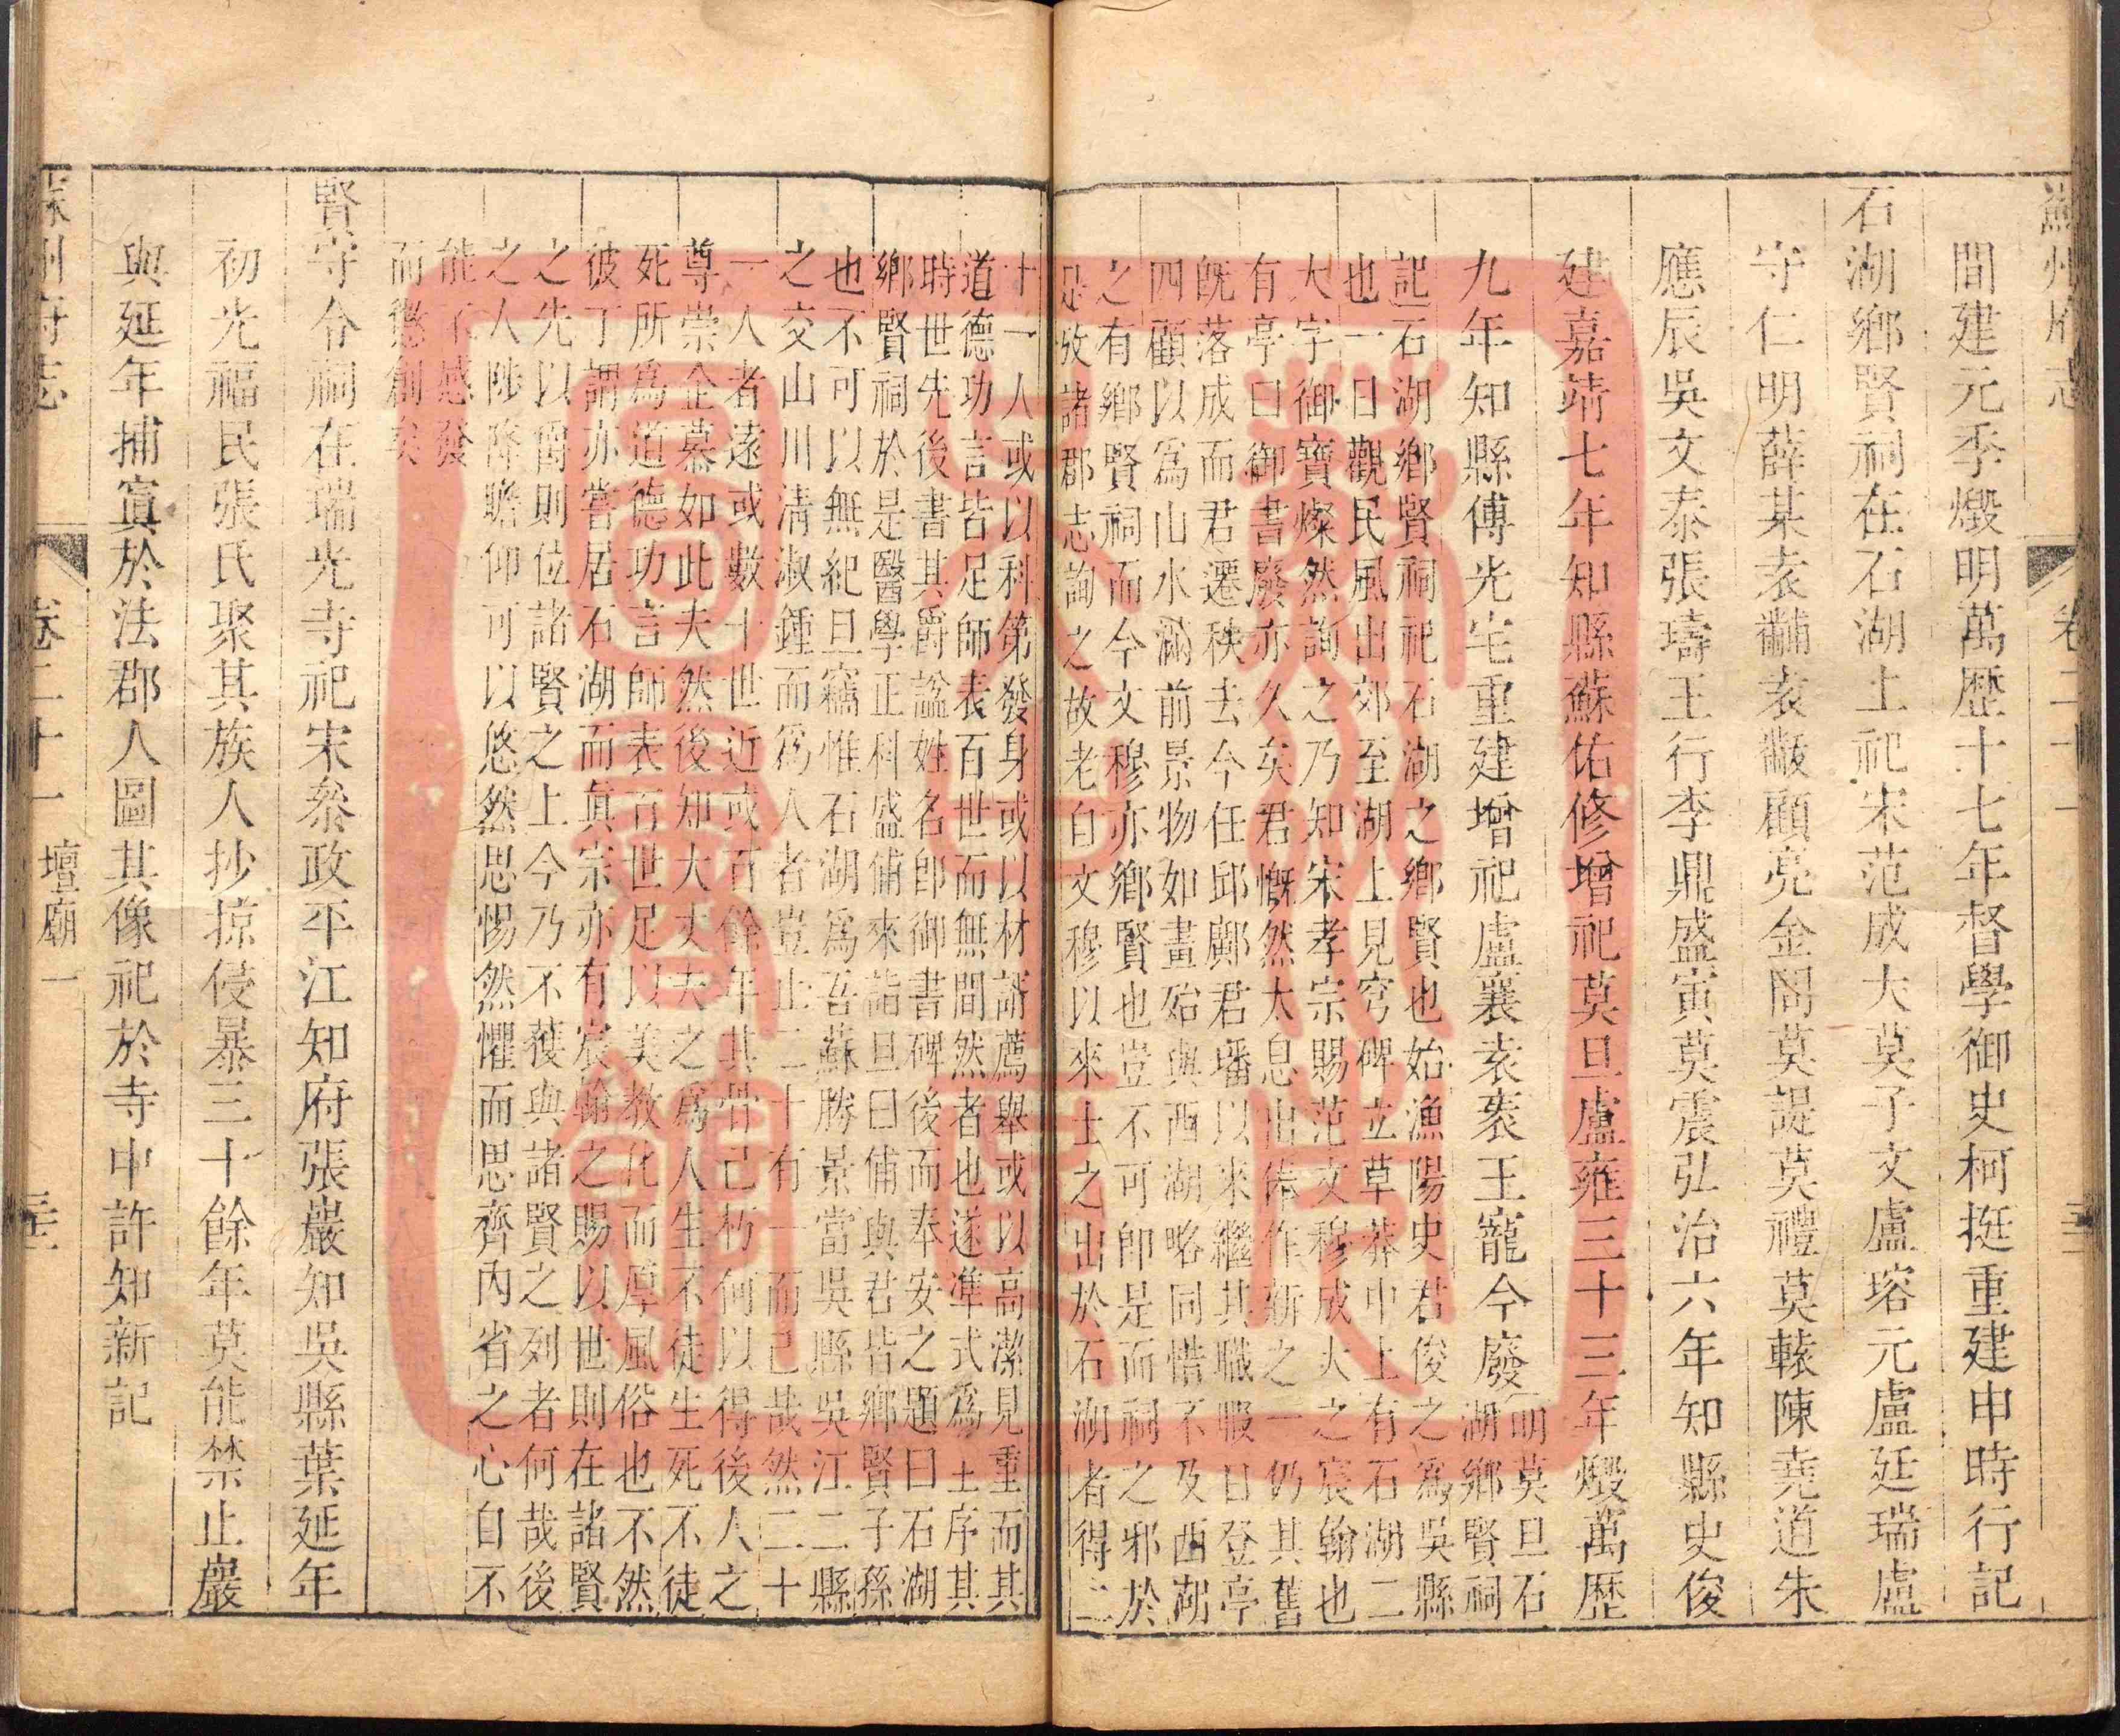 蘇州府志
卷二十一
間建元季燬明萬歷十七年督學御史柯挺重建申時行記
石湖鄉賢祠在石湖上祀宋范成大莫子文盧瑢元盧廷瑞盧
守仁明薛某袁黼袁敝顧亮金問莫諟莫禮莫轅陳堯道朱
應辰吳文泰張璹王行李鼎盛寅莫震弘治六年知縣史俊
建嘉靖七年知縣蘇佑修增祀莫旦盧雍三十三年燬萬歷
九年知縣傅光宅重建增祀盧襄袁袠王寵今廢
明莫旦石
湖鄉賢祠
記石湖鄉賢祠祀石湖之鄉賢也始漁陽史君俊之爲吳縣
也一日觀民風出郊至湖上見穹碑立草莽中上有石湖二
大字御寶燦然詢之乃知宋孝宗賜范文穆成大之宸翰也
有亭曰御書廢亦久矣君慨然太息出俸作新之一仍其舊
既落成而君遷秩去今任邱鄺君璠以來繼其職暇日登亭
四顧以爲山水滿前景物如畫殆與西湖略同惜不及西湖
之有鄉賢祠而今文穆亦鄉賢也豈不可卽是而祠之邪於
是攷諸郡志詢之故老自文穆以來士之出於石湖者得二
十一人或以科第發身或以材諝薦舉或以高潔見重而其
道德功言皆足師表百世而無間然者也遂準式爲主序其
時世先後書其爵諡姓名卽御書碑後而奉安之題曰石湖
鄉賢祠於是醫學正科盛俌來詣旦曰俌與君皆鄉賢子孫
也不可以無紀旦竊惟石湖爲吾蘇勝景當吳縣吳江二縣
之交山川淸淑鍾而爲人者豈止二十有一而已哉然二十
一人者遠或數十世近或百餘年其骨已朽何以得後人之
尊崇企慕如此夫然後知大丈夫之爲人生不徒生死不徒
死所爲道德功言師表百世足以美教化而厚風俗也不然
彼丁謂亦嘗居石湖而眞宗亦有宸翰之賜以世則在諸賢
之先以爵則位諸賢之上今乃不獲與諸賢之列者何哉後
之人陟降瞻仰可以悠然思惕然懼而思齊內省之心自不
能不感發
而懲創矣
賢守令祠在瑞光寺祀宋叅政平江知府張巖知吳縣葉延年
初光福民張氏聚其族人抄掠侵暴三十餘年莫能禁止巖
與延年捕寘於法郡人圖其像祀於寺中許知新記
蘇州府志
卷二十一
壇廟一